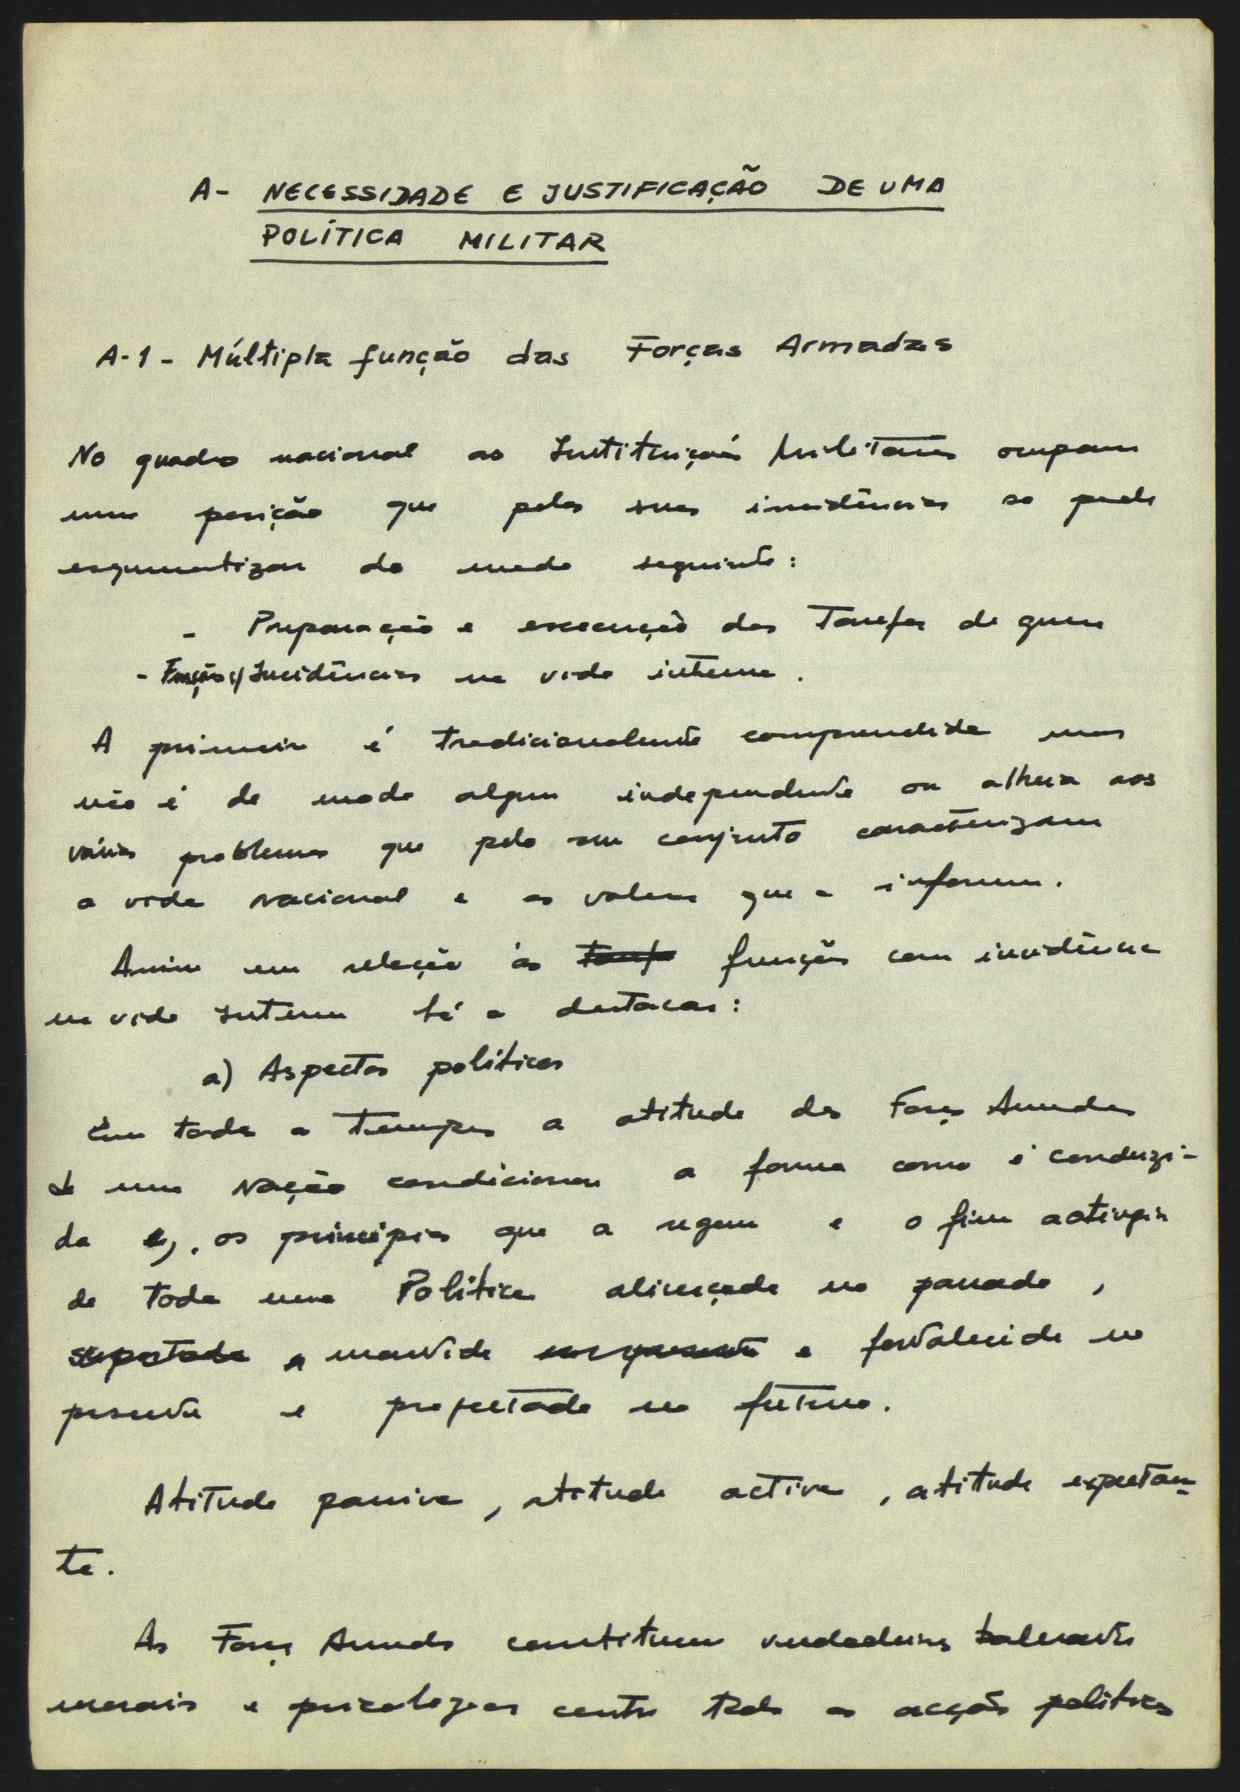 A- NECESSIDADE E JUSTIFICAÇÃO DE UMA
POLÍTICA MILITAR
A-1- Múltipla função das Forças Armadas
No quadro nacional as Instituições Militares ocupam
uma posição que pelas suas incidências se pode
esquematizar do modo seguinte:
- Preparação e execução das Tarefas de guerra
- Funções c/ Incidências na vida interna.
A primeira é tradicionalmente compreendida mas
não é de modo algum independente ou alheia aos
vários problemas que pelo seu conjunto caracterizam
a vida nacional e os valores que a informam.
Assim em relação às funções com incidência
na vida Interna há a destacar:
a) Aspectos políticos
Em todos os Tempos a atitude das Forças Armadas
de uma Nação condicionou a forma como é conduzi-
da e, os princípios que a regem e o fim a atingir
de toda uma Política alicerçada no passado,
suportada mantida e fortalecida no
presente e projectada no futuro.
Atitude passiva, atitude activa, atitude expectan-
te.
As Forças Armadas constituem verdadeiros baluartes
morais e psicológicos contra todas as acções políticas